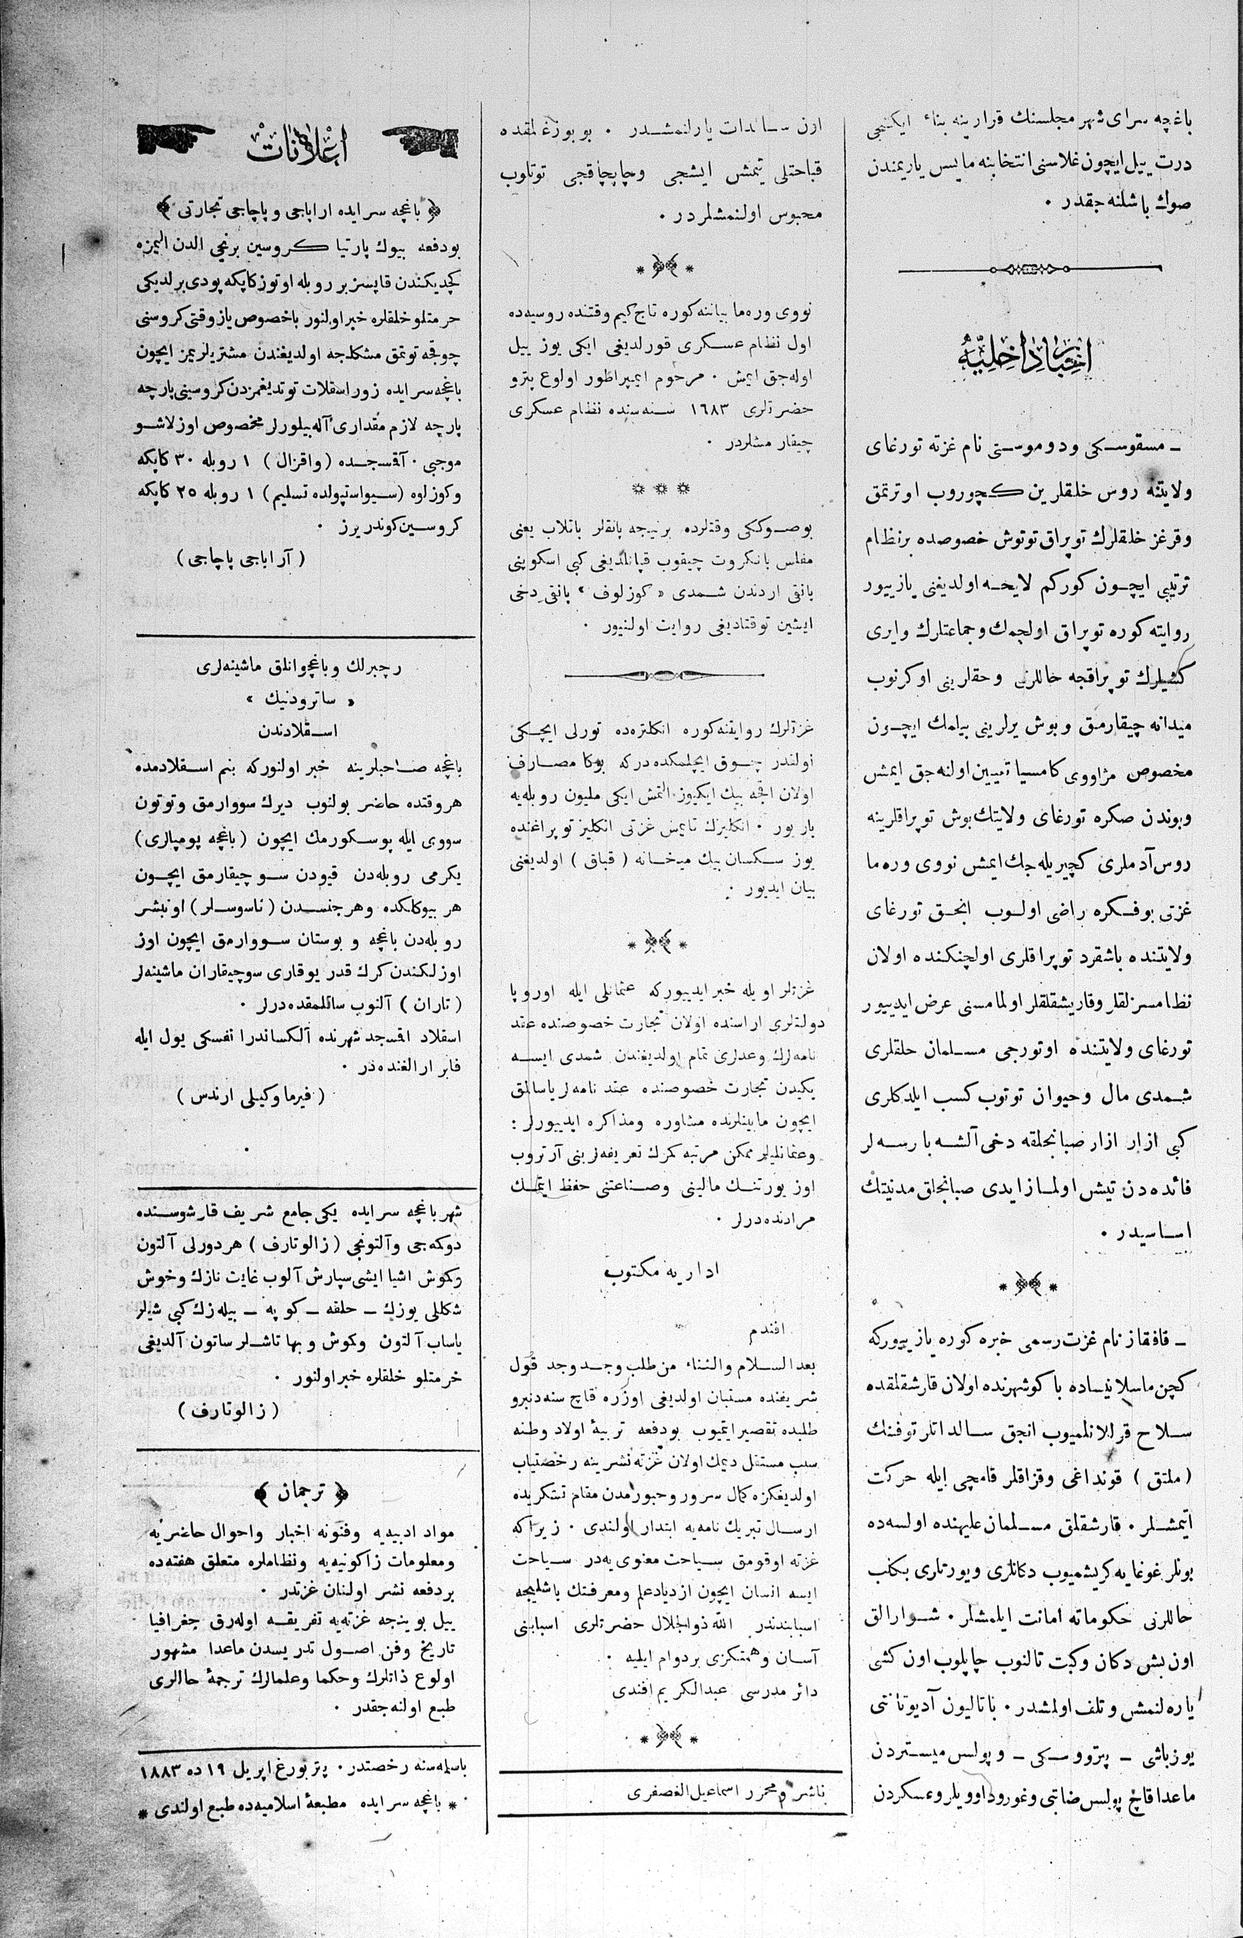 باغچه سرای شهر مجلسنك قرارینه بناء ایكنجی
درت ییل ایچون غلاسنی انتخابنه مایس یاریمندن
صوك باشلنه جقدر ٠
اخبار داخلیه
ـ مسقوسكی ودوموستی نام غزته تورغای
ولایتنه روس خلقلرین كچوروب اوترتمق
وقرغز خلقلرك توپراق توتوش خصوصده برنظام
ترتیبی ایچون كوركم لایحه اولدیغنی یازییور
روایته كوره توپراق اولچمك وجماعتلرك وایری
كشیلرك توپراقجه خاللرنی وحقارینی اوكرنوب
میدانه چیقارمق وبوش یرلرینی بیلمك ایچون
مخصوص مژاووی كامسیا تعیین اولنه جق ایمش
وبوندن صكره تورغای ولایتك بوش توپراقلرینه
روس آدملری كچیریله جك ایمش نووی وره ما
غزتی بوفكره راضی اولوب انجق تورغای
ولایتنده باشقرد توپراقلری اولچنكنده اولان
نظامسزلقلر وقاریشقلقلر اولمامسنی عرض ایدییور
تورغای ولایتنده اوتورجی مسلمان خلقلری
شمدی مال وحیوان توتوب كسب ایلدكلری
كبی ازار ازار صبانجلقه دخی آلشه بارسه لر
فائده دن تیش اولمازایدی صبانجلق مدنیتك
اساسیدر ٠
ـ قافقاز نام غزت رسمی خبره كوره یازییوركه
كچن ماسلانیساده باكوشهرنده اولان قارشقلمقده
سلاح قوللانلمیوب انجق سالداتلر توفنك
( ملتق ) قونداغی وقزاقلر قامچی ایله حركت
ایتمشلر ٠ قارشقلق مسلمان علیهنده اولسه ده
بونلر غوغایه كریشمیوب دكانلری ویورتلری بكلب
حاللرنی حكوماته امانت ایلمشلر ٠ شوارالق
اون بش دكان وكبت تالنوب چاپلوب اون كشی
یاره لنمش وتلف اولمشدر ٠ باتالیون آدیوتانتی
یوزباشی ـ پتروسكی ـ وپولس میستردن
ماعدا قاچ پولس ضابتی وغورودوویلر وعسكردن
اون سالدات یارلنمشدر ٠ بو بوزغلمقده
قباحتلی یتمش ایشجی وچاپچاقجی توتلوب
محبوس اولنمشلردر ٠
نووی وره ما بیاننه كوره تاج كیم وقتنده روسیه ده
اول نظام عسكری قورلدیغی ایكی یوز ییل
اوله جق ایمش ٠ مرحوم ایمپراطور اولوع پترو
حضرتلری ١٦٨٣ سنه سنده نظام عسكری
چیقارمشلردر ٠
بوصوككی وقتلرده برنیجه پانقلر باتلاب یعنی
مفلس بانكروت چیقوب قپانلدیغی كبی اسكوپنی
بانتی اردندن شمدی « كوزلوف » بانتی دخی
ایشین توقتادیغی روایت اولنیور ٠
غزتلرك روایتنه كوره انكلتره ده تورلی ایچكی
نولندر چوق ایچلمكده دركه بوكا مصارف
اولان اقچه بیك ایكیوز التمش ایكی ملیون روبله یه
باربور ٠ انكلیزك تایمس غزتی انكلیز توپراغنده
یوز سكسان بیك میخانه ( قباق ) اولدیغنی
بیان ایدیور ٠
غزتلر اویله خبر ایدییوركه عثمانلی ایله اوروپا
دولتلری اراسنده اولان تجارت خصوصنده عقد
نامه لرك وعدلری تمام اولدیغندن شمدی ایسه
یكیدن تجارت خصوصنده عقد نامه لر یاسالمق
ایچون مابینلرنده مشاوره ومذاكره ایدییورلر :
وعثمانلیلر ممكن مرتبه كمرك تعریفه لرینی آرتروب
اوز یورتنك مالینی وصناعتنی حفظ ایتمك
مرادنده درلر ٠
اداریه مكتوب
افندم
بعد السلام والثناء من طلب وجد وجد قول
شریفنده مستبان اولدیغی اوزره قاچ سنه دنبرو
طلبده تقصیر ایتمیوب بودفعه تربیهٔ اولاد وطنه
سبب مستقل دیمك اولان غزته نشرینه رخصتیاب
اولدیغكزه كمال سرور وحبورمدن مقام تشكریده
ارسال تبریك نامه یه ابتدار اولندی ٠ زیراكه
غزته اوقومق سیاحت معنوی یه در سیاحت
ایسه انسان ایچون ازدیاد علم ومعرفتك باشلیجه
اسبابندندر الله ذوالجلال حضرتلری اسبابنی
آسان وهمتكزی بردوام ایلیه ٠
دائر مدرسی عبدالكریم افندی
ناشر ومحرر اسماعیل الغصفری
اعلانات
﴿ باغچه سرایده اراباجی وپاچاجی تجارتی ﴾
بودفعه بیوك پارتیا كروسین برنجی الدن الیمزه
كچدیكندن قاپسز بر روبله اوتوز كاپكه پودی بر لدیكی
حرمتلو خلقلره خبر اولنور باخصوص یازوقتی كروسنی
چوقجه توتمق مشكلجه اولدیغندن مشتریلریمز ایچون
باغچه سرایده زور اسقلات توتدیغمزدن كروسینی پارچه
پارچه لازم مقداری آله بیلورلر مخصوص اوزلاشو
موجبی ٠ آقسجده ( واقزال ) ١ روبله ٣٠ كاپكه
وكوزلوه ( سیواستپولده تسلیم ) ١ روبله ٢٥ كاپكه
كروسین كوندریرز ٠
( آراباجی پاچاجی )
رچبرلك وباغچوانلق ماشینه لری
« ساترودنیك »
اسقلادندن
باغچه صاحبلرینه خبر اولنوركه بنم اسقلادمده
هروقتده حاضر بولنوب دیرك سووارمق وتوتون
سووی ایله پوسكورمك ایچون ( باغچه پومپالری )
یكرمی روبله دن قیودن سو چیقارمق ایچون
هر بیوكلكده وهر جنسدن ( ناسوسلر ) اونبشر
روبله دن باغچه و بوستان سووارمق ایچون اوز
اوزلكندن كرك قدر یوقاری سوچیقاران ماشینه لر
( تاران ) آلنوب ساتلمقده درلر ٠
اسقلاد اقسجد شهرنده آلكساندرا نفسكی یول ایله
فابر ارالغنده در ٠
( فیرما وكیلی ارندس )
شهر باغچه سرایده یكی جامع شریف قارشوسنده
دوكمه جی وآلتونجی ( زالوتارف ) هردورلی آلتون
وكموش اشیا ایشی سپارش آلوب غایت نازك وخوش
شكللی یوزك ـ حلقه ـ كوپه ـ بیله زك كبی شیلر
یاساب آلتون وكموش وبها تاشلر ساتون آلدیغی
خرمتلو خلقلره خبر اولنور ٠
( زالوتارف )
﴿ ترجمان ﴾
مواد ادبییه وفنونه اخبار واحوال حاضریه
ومعلومات زاكونیه یه ونظاملره متعلق هفته ده
بردفعه نشر اولنان غزتدر ٠
ییل بوینجه غزته یه تفریقه اوله رق جغرافیا
تاریخ وفن اصول تدریسدن ماعدا مشهور
اولوع ذاتلرك وحكما وعلمالرك ترجمهٔ حاللری
طبع اولنه جقدر ٠
باسلمه سنه رخصتدر ٠ پتربورغ اپریل ١٩ ده ١٨٨٣
* باغچه سرایده مطبعهٔ اسلامیه ده طبع اولندی *